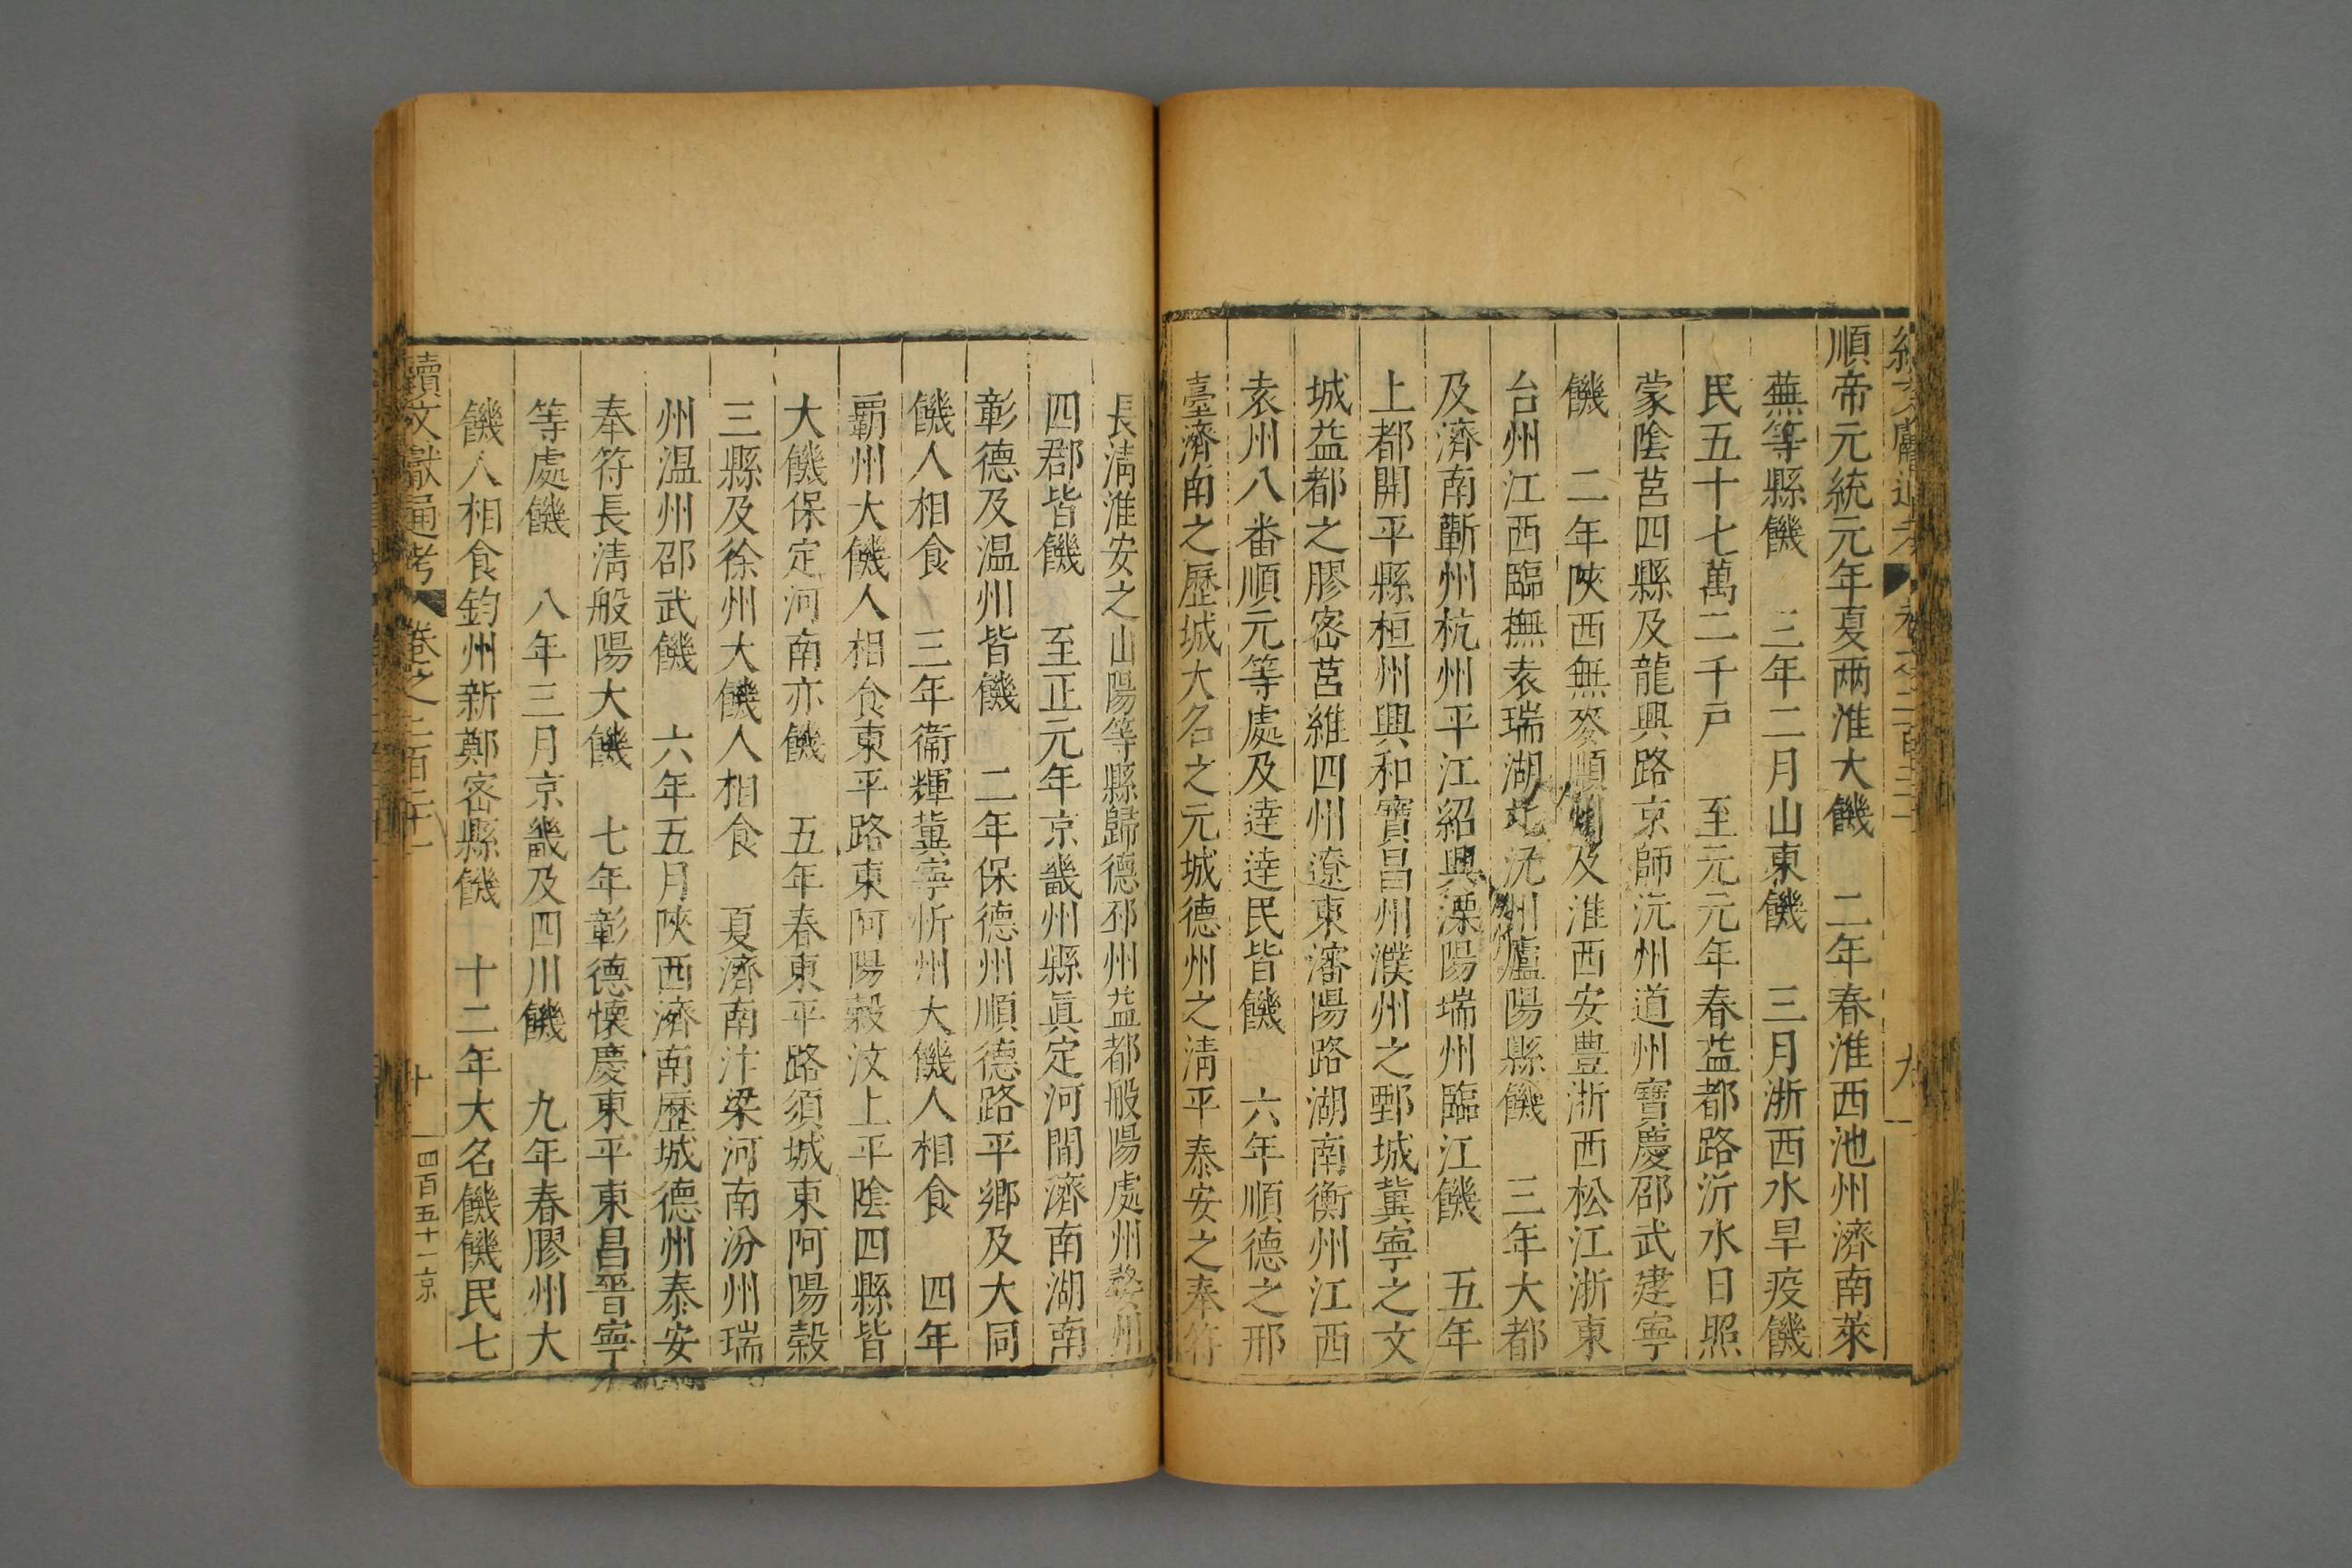 續文獻通考 卷之二百二十 九
順帝元統元年夏兩淮大饑 二年春淮西池州濟南萊
蕪等縣饑 三年二月山東饑 三月浙西水旱疫饑
民五十七萬二千戸 至元元年春益都路沂水日照
蒙陰莒四縣及龍興路京師沅州道州寶慶邵武建寧
饑 二年陜西無麥順州及淮西安豊浙西松江浙東
台州江西臨撫袁瑞湖北沅州廬陽縣饑 三年大都
及濟南蘄州杭州平江紹興溧陽瑞州臨江饑 五年
上都開平縣桓州興和寶昌州濮州之鄄城冀寧之文
城益都之膠密莒維四州遼東瀋陽路湖南衡州江西
袁州八番順元等處及達達民皆饑 六年順德之邢
臺濟南之歷城大名之元城德州之清平泰安之奉符
長清淮安之山陽等縣歸德邳州益都般陽處州婺州
四郡皆饑 至正元年京畿州縣眞定河間濟南湖南
彰德及温州皆饑 二年保德州順德路平鄉及大同
饑人相食 三年衞輝冀寧忻州大饑人相食 四年
霸州大饑人相食東平路東阿陽榖汶上平陰四縣皆
大饑保定河南亦饑 五年春東平路須城東阿陽榖
三縣及徐州大饑人相食 夏濟南汴梁河南汾州瑞
州温州邵武饑 六年五月陜西濟南歷城德州泰安
奉符長清般陽大饑 七年彰德懷慶東平東昌晋寧
等處饑 八年三月京畿及四川饑 九年春膠州大
饑人相食鈞州新鄭密縣饑 十二年大名饑饑民七
續文獻通考 卷之二百二十 十 四百五十一京